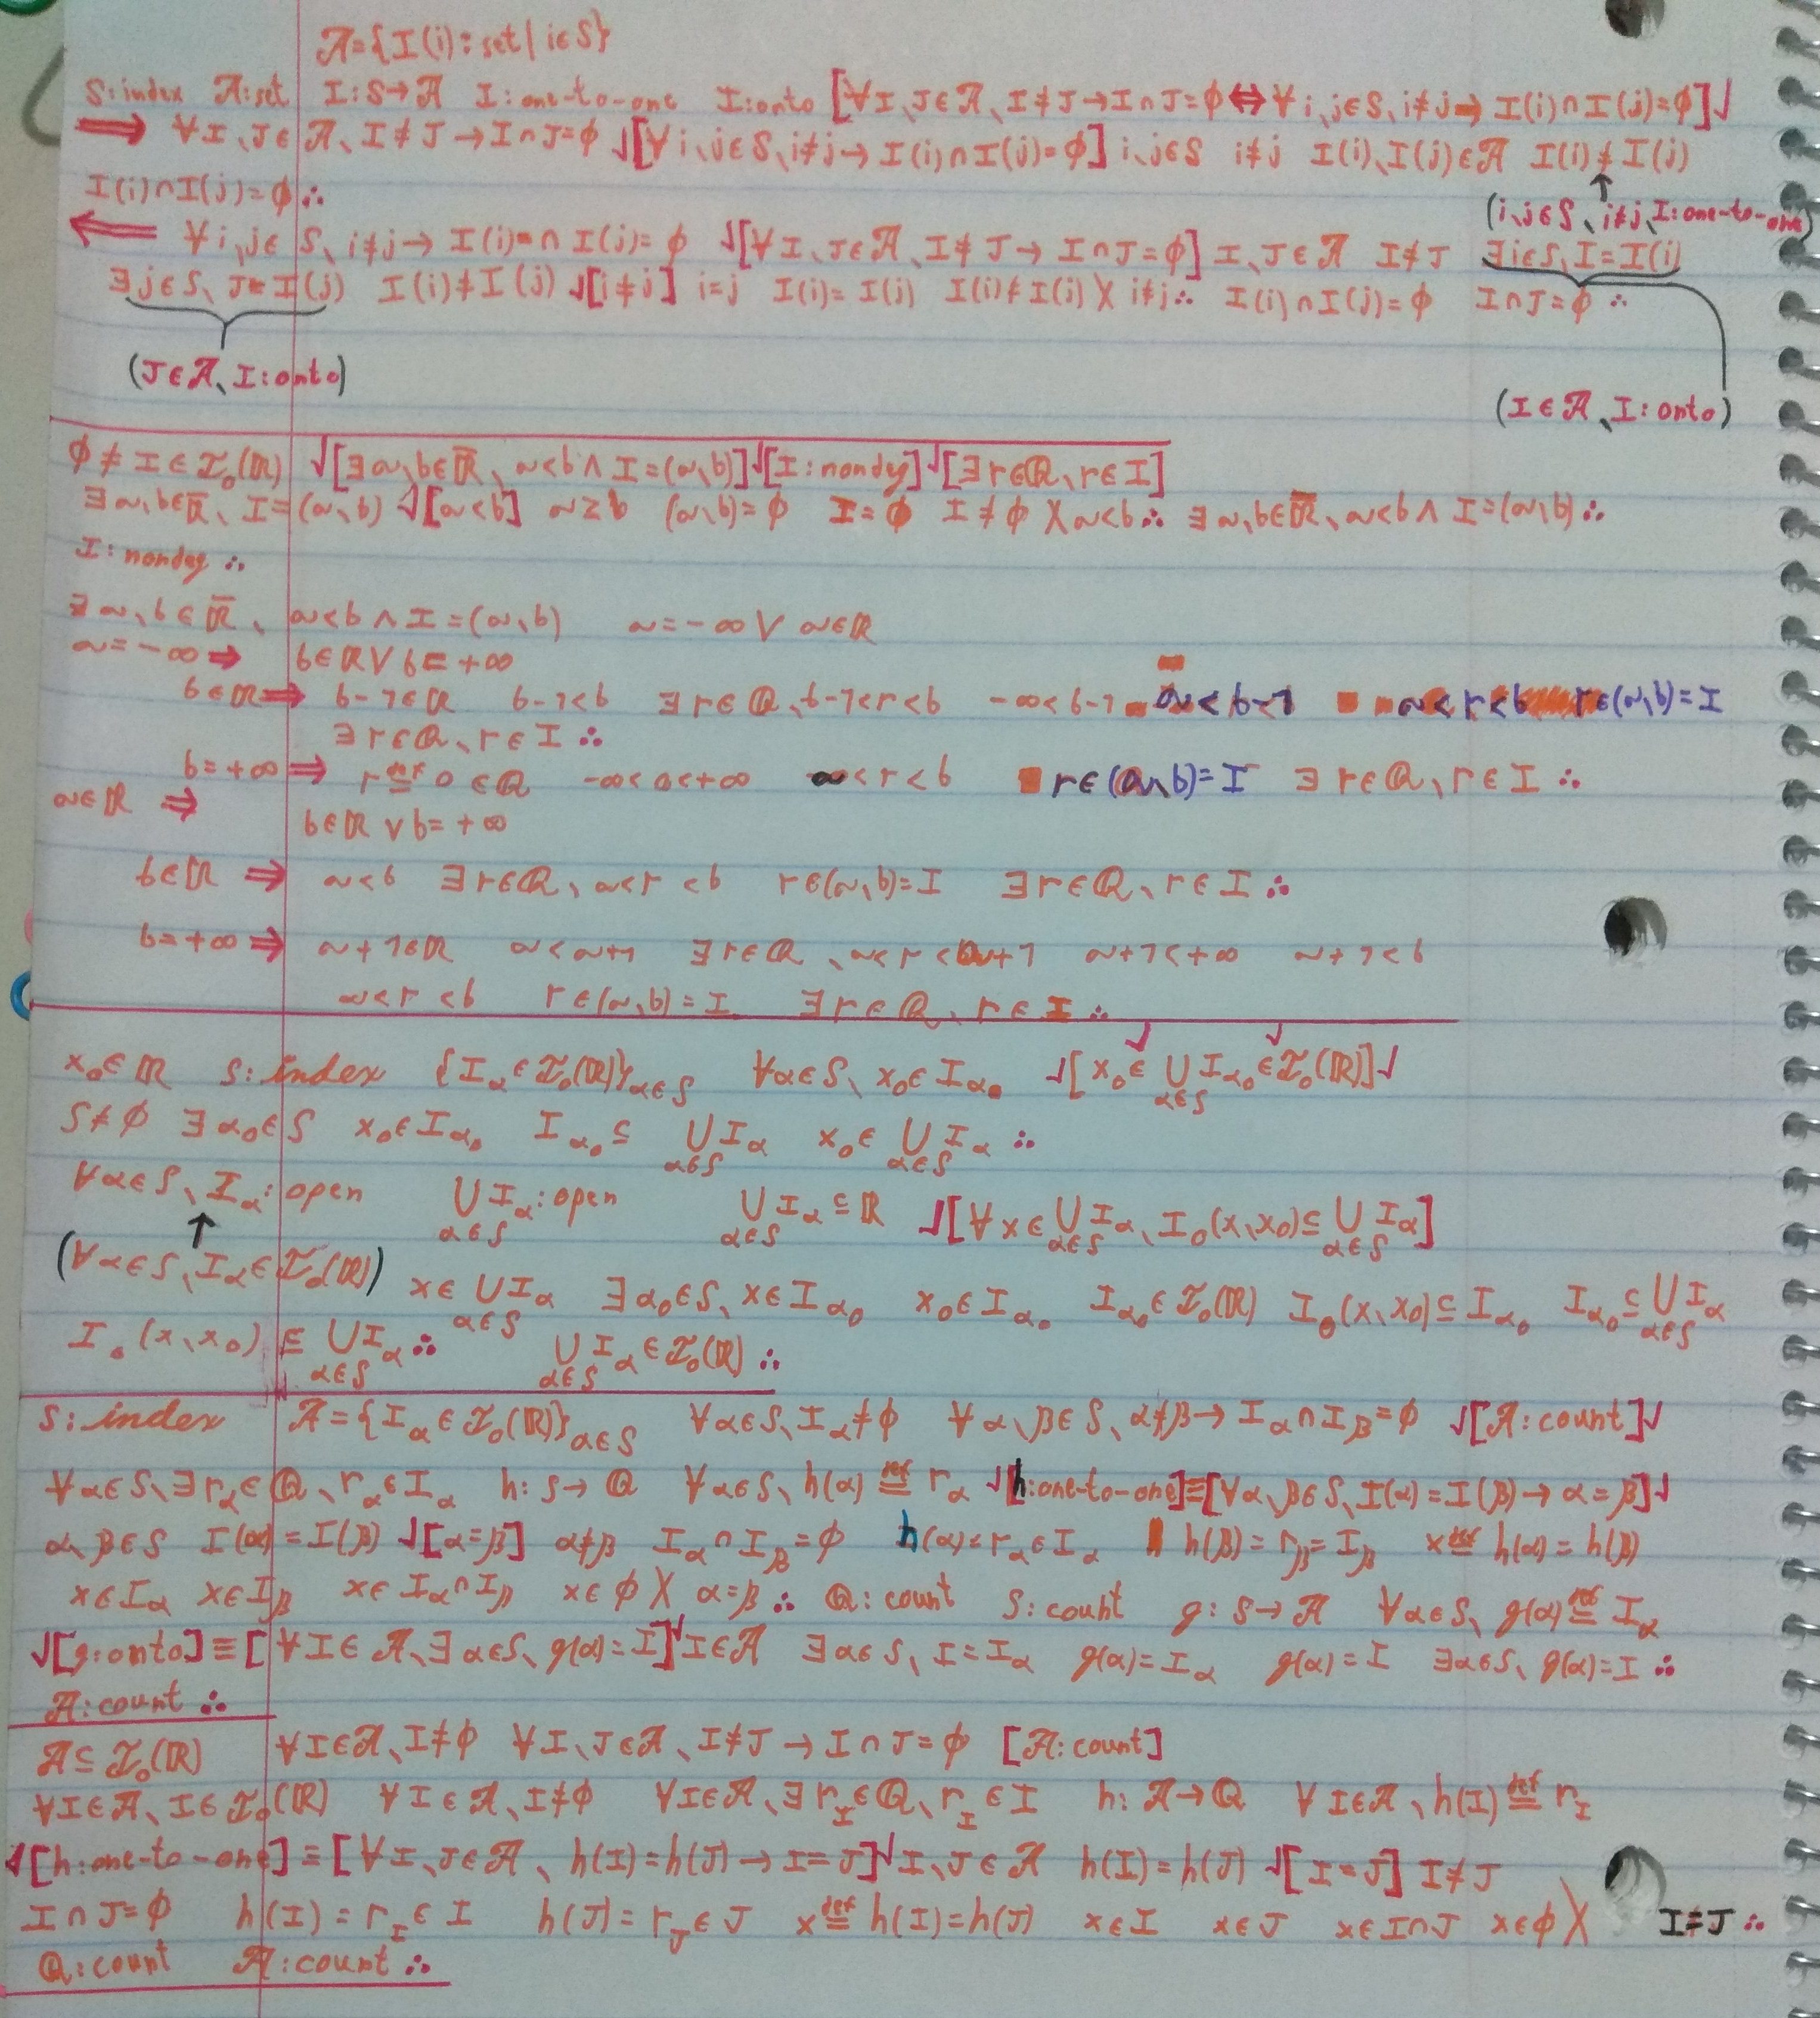 𝒜={I(i):set| i∈S}
S:index 𝒜:set I:S→𝒜 I:one-to-one I:onto [∀I、J∈𝒜、I≠J→I∩J=ϕ⇔∀i、j∈S、i≠j→I(i)∩I(j)=ϕ]√
⟹ ∀I、J∈𝒜、I≠J→I∩J=ϕ √[∀i、j∈S、i≠j→I(i)∩I(j)=ϕ] i、j∈S i≠j I(i)、I(j)∈𝒜 I(i)≠I(j)
I(i)∩I(j)=ϕ∴
↑
(i、j∈S、i≠j、I:one-to-one)
⟸ ∀i、j∈S、i≠j→I(i)∩I(j)=ϕ √[∀I、J∈𝒜、I≠J→I∩J=ϕ] I、J∈𝒜 I≠J ∃i∈S、I=I(i)
∃j∈S、J=I(j) I(i)≠I(j) √[i≠j] i=j I(i)=I(j) I(i)≠I(j) X i≠j∴ I(i)∩I(j)=ϕ I∩J=ϕ ∴
(J∈𝒜、I:onto)
(I∈𝒜、I:onto)
ϕ≠I∈ℐ₀(ℝ) √[∃a、b∈ℝ̅、a<b∧I=(a、b)]√[I:nondeg]√[∃r∈ℚ、r∈I]
∃a、b∈ℝ̅、I=(a、b) √[a<b] a≥b (a、b)=ϕ I=ϕ I≠ϕ X a<b∴ ∃a、b∈ℝ̅、a<b∧I=(a、b)∴
I:nondeg ∴
∃a、b∈ℝ̅、 a<b∧I=(a、b) a=-∞∨a∈ℝ
a=-∞⇒ b∈ℝ∨b=+∞
b∈ℝ⇒ b-1∈ℝ b-1<b ∃r∈ℚ、b-1<r<b -∞<b-1 a<b-1 a<r<b r∈(a、b)=I
∃r∈ℚ、r∈I ∴
b=+∞⇒ r≝0∈ℚ -∞<0<+∞ a<r<b r∈(a、b)=I ∃r∈ℚ、r∈I ∴
a∈ℝ ⇒
b∈ℝ∨b=+∞
b∈ℝ ⇒ a<b ∃r∈ℚ、a<r<b r∈(a、b)=I ∃r∈ℚ、r∈I ∴
b=+∞⇒ a+1∈ℝ a<a+1 ∃r∈ℚ、a<r<a+1 a+1<+∞ a+1<b
a<r<b r∈(a、b)=I ∃r∈ℚ、r∈I ∴
x₀∈ℝ S:index {I_α∈ℐ₀(ℝ)}_{α∈S} ∀α∈S、x₀∈I_α₀ √[x₀∈ ⋃_{α∈S} I_α₀∈ℐ₀(ℝ)]√
S≠ϕ ∃α₀∈S x₀∈I_α₀ I_α₀⊆ ⋃_{α∈S} I_α x₀∈ ⋃_{α∈S} I_α ∴
∀α∈S、I_α:open ⋃_{α∈S} I_α:open ⋃_{α∈S} I_α⊆ℝ √[∀x∈⋃_{α∈S} I_α、I₀(x、x₀)⊆⋃_{α∈S} I_α]
↑
(∀α∈S、I_α∈ℐ₀(ℝ)) x∈⋃_{α∈S} I_α ∃α₀∈S、x∈I_α₀ x₀∈I_α₀ I_α₀∈ℐ₀(ℝ) I₀(x、x₀)⊆I_α₀ I_α₀⊆⋃_{α∈S} I_α
I₀(x、x₀)⊆⋃_{α∈S} I_α∴ ⋃_{α∈S} I_α∈ℐ₀(ℝ) ∴
S:index 𝒜={I_α∈ℐ₀(ℝ)}_{α∈S} ∀α∈S、I_α≠ϕ ∀α、β∈S、α≠β→I_α∩I_β=ϕ √[𝒜:count]√
∀α∈S、∃r_α∈ℚ、r_α∈I_α h:S→ℚ ∀α∈S、h(α)≝r_α √[h:one-to-one]≡[∀α、β∈S、I(α)=I(β)→α=β]√
α、β∈S I(α)=I(β) √[α=β] α≠β I_α∩I_β=ϕ h(α)=r_α∈I_α h(β)=r_β=I_β x≝h(α)=h(β)
x∈I_α x∈I_β x∈I_α∩I_β x∈ϕ X α=β∴ ℚ:count S:count g:S→𝒜 ∀α∈S、g(α)≝I_α
√[g:onto]≡[∀I∈𝒜、∃α∈S、g(α)=I]√ I∈𝒜 ∃α∈S、I=I_α g(α)=I_α g(α)=I ∃α∈S、g(α)=I ∴
𝒜:count ∴
𝒜⊆ℐ₀(ℝ) ∀I∈𝒜、I≠ϕ ∀I、J∈𝒜、I≠J→I∩J=ϕ [𝒜:count]
∀I∈𝒜、I∈ℐ₀(ℝ) ∀I∈𝒜、I≠ϕ ∀I∈𝒜、∃r_I∈ℚ、r_I∈I h:𝒜→ℚ ∀I∈𝒜、h(I)≝r_I
√[h:one-to-one]≡[∀I、J∈𝒜、h(I)=h(J)→I=J]√ I、J∈𝒜 h(I)=h(J) √[I=J] I≠J
I∩J=ϕ h(I)=r_I∈I h(J)=r_J∈J x≝h(I)=h(J) x∈I x∈J x∈I∩J x∈ϕ X I=J ∴
ℚ:count 𝒜:count ∴